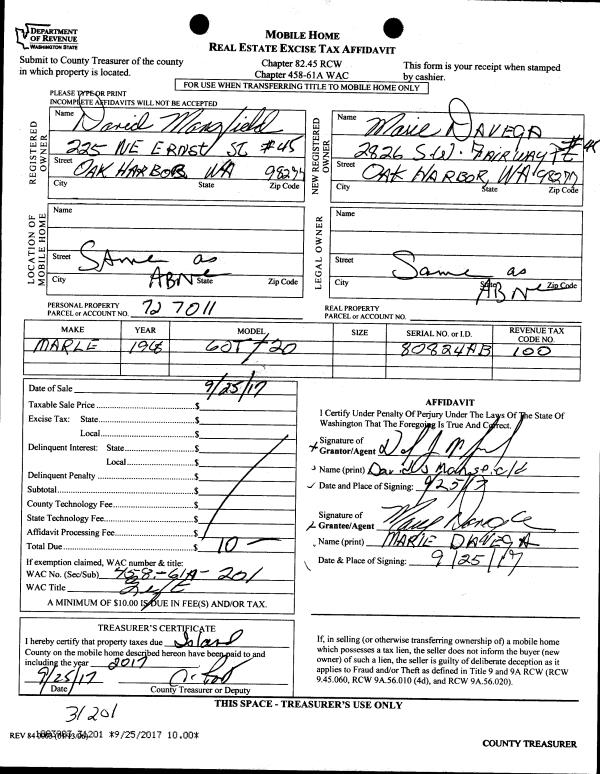 DEPARTMENT
OF REVENUE
WASHINGTON STATE
MOBILE HOME
REAL ESTATE EXCISE TAX AFFIDAVIT
Submit to County Treasurer of the county
in which property is located.
Chapter 82.45 RCW
Chapter 458-61A WAC
This form is your receipt when stamped
by cashier.
FOR USE WHEN TRANSFERRING TITLE TO MOBILE HOME ONLY
PLEASE TYPE OR PRINT
INCOMPLETE AFFIDAVITS WILL NOT BE ACCEPTED
REGISTERED OWNER
Name David Mansfield
225 NE ERNST ST #45
Street OAK HARBOR WA 98277
City State Zip Code
NEW REGISTERED OWNER
Name Marie DAVEGA
2826 S.W. FAIRWAY PT
Street OAK HARBOR, WA 98277
City State Zip Code
LOCATION OF MOBILE HOME
Name
Street SAme as
City State Zip Code
LEGAL OWNER
Name
Street Same as
City State Zip Code
PERSONAL PROPERTY
PARCEL or ACCOUNT NO. 727011
REAL PROPERTY
PARCEL or ACCOUNT NO.
MAKE YEAR MODEL SIZE SERIAL NO. or I.D. REVENUE TAX CODE NO.
MARLE 60T/20 80824AB 100
Date of Sale 9/25/17
Taxable Sale Price $
Excise Tax: State $
Local $
Delinquent Interest: State $
Local $
Delinquent Penalty $
Subtotal $
County Technology Fee $
State Technology Fee $
Affidavit Processing Fee $
Total Due $ 10 -
If exemption claimed, WAC number & title:
WAC No. (Sec/Sub) 458-61A-201
WAC Title Gift
A MINIMUM OF $10.00 IS DUE IN FEE(S) AND/OR TAX.
AFFIDAVIT
I Certify Under Penalty Of Perjury Under The Laws Of The State Of
Washington That The Foregoing Is True And Correct.
Signature of
Grantor/Agent
Name (print)
Date and Place of Signing: 9/25/17
Signature of
Grantee/Agent
Name (print) MARIE DAVEGA
Date & Place of Signing: 9/25/17
TREASURER'S CERTIFICATE
I hereby certify that property taxes due Island
County on the mobile home described hereon have been paid to and
including the year 2017
9/25/17
Date County Treasurer or Deputy
If, in selling (or otherwise transferring ownership of) a mobile home
which possesses a tax lien, the seller does not inform the buyer (new
owner) of such a lien, the seller is guilty of deliberate deception as it
applies to Fraud and/or Theft as defined in Title 9 and 9A RCW (RCW
9.45.060, RCW 9A.56.010 (4d), and RCW 9A.56.020).
THIS SPACE - TREASURER'S USE ONLY
31201
REV 84 31201 *9/25/2017 10.00*
COUNTY TREASURER